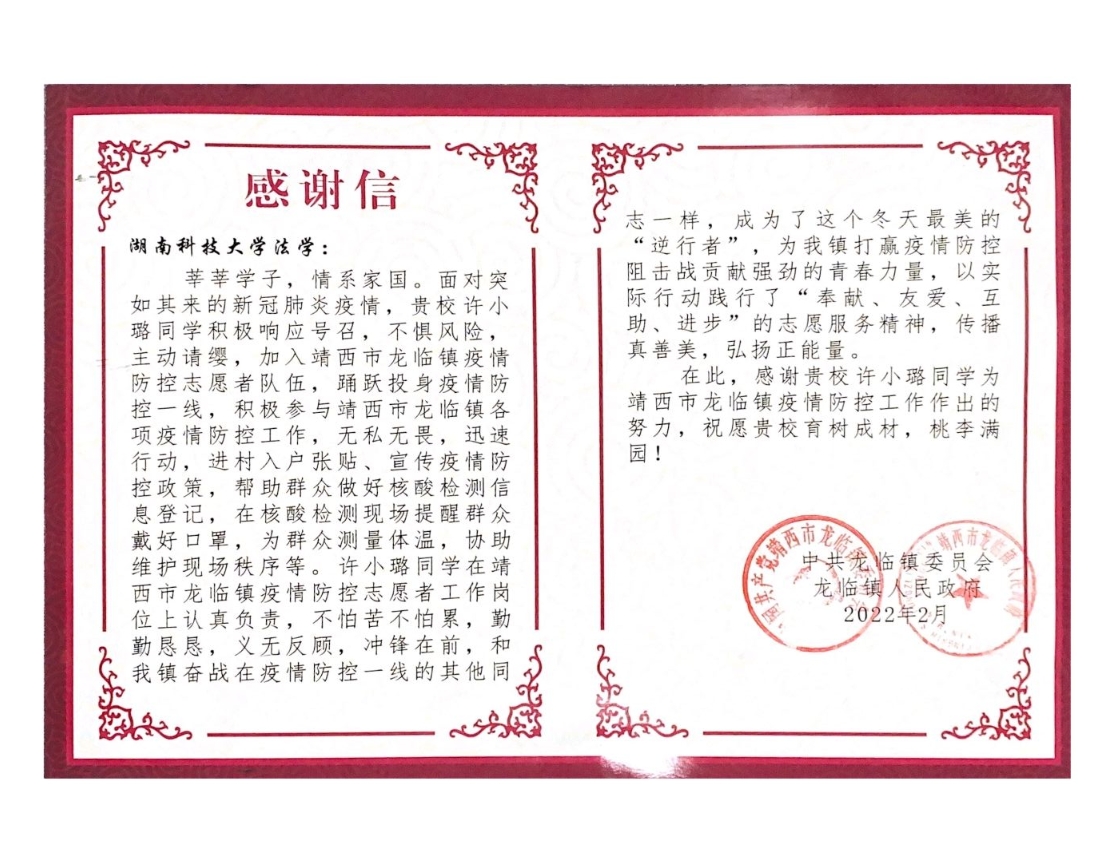 感谢信
湖南科技大学法学：
莘莘学子，情系家国。面对突
如其来的新冠肺炎疫情，贵校许小
璐同学积极响应号召，不惧风险，
主动请缨，加入靖西市龙临镇疫情
防控志愿者队伍，踊跃投身疫情防
控一线，积极参与靖西市龙临镇各
项疫情防控工作，无私无畏，迅速
行动，进村入户张贴、宣传疫情防
控政策，帮助群众做好核酸检测信
息登记，在核酸检测现场提醒群众
戴好口罩，为群众测量体温，协助
维护现场秩序等。许小璐同学在靖
西市龙临镇疫情防控志愿者工作岗
位上认真负责，不怕苦不怕累，勤
勤恳恳，义无反顾，冲锋在前，和
我镇奋战在疫情防控一线的其他同
志一样，成为了这个冬天最美的
“逆行者”，为我镇打赢疫情防控
阻击战贡献强劲的青春力量，以实
际行动践行了“奉献、友爱、互
助、进步”的志愿服务精神，传播
真善美，弘扬正能量。
在此，感谢贵校许小璐同学为
靖西市龙临镇疫情防控工作作出的
努力，祝愿贵校育树成材，桃李满
园！
中共龙临镇委员会
龙临镇人民政府
2022年2月